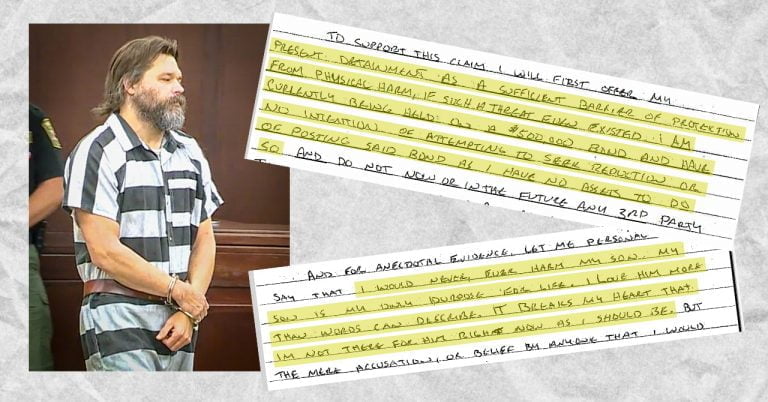 TO SUPPORT THIS CLAIM I WILL FIRST OFFER MY
PRESENT DETAINMENT AS A SUFFICIENT BARRIER OR PROTECTION
FROM PHYSICAL HARM, IF SUCH A THREAT EVEN EXISTED. I AM
CURRENTLY BEING HELD ON A $500,000 BOND AND HAVE
NO INTENTION OF ATTEMPTING TO SEEK REDUCTION OR
OF POSTING SAID BOND AS I HAVE NO ASSETS TO DO
SO. AND DO NOT NOW OR IN THE FUTURE ANY 3RD PARTY
AND FOR ANECDOTAL EVIDENCE, LET ME PERSONAL
SAY THAT I WOULD NEVER, EVER HARM MY SON. MY
SON IS MY ONLY PURPOSE FOR LIFE. I LOVE HIM MORE
THAN WORDS CAN DESCRIBE. IT BREAKS MY HEART THAT
IM NOT THERE FOR HIM RIGHT NOW AS I SHOULD BE. BUT
THE MERE ACCUSATION, OR BELIEF BY ANYONE THAT I WOULD